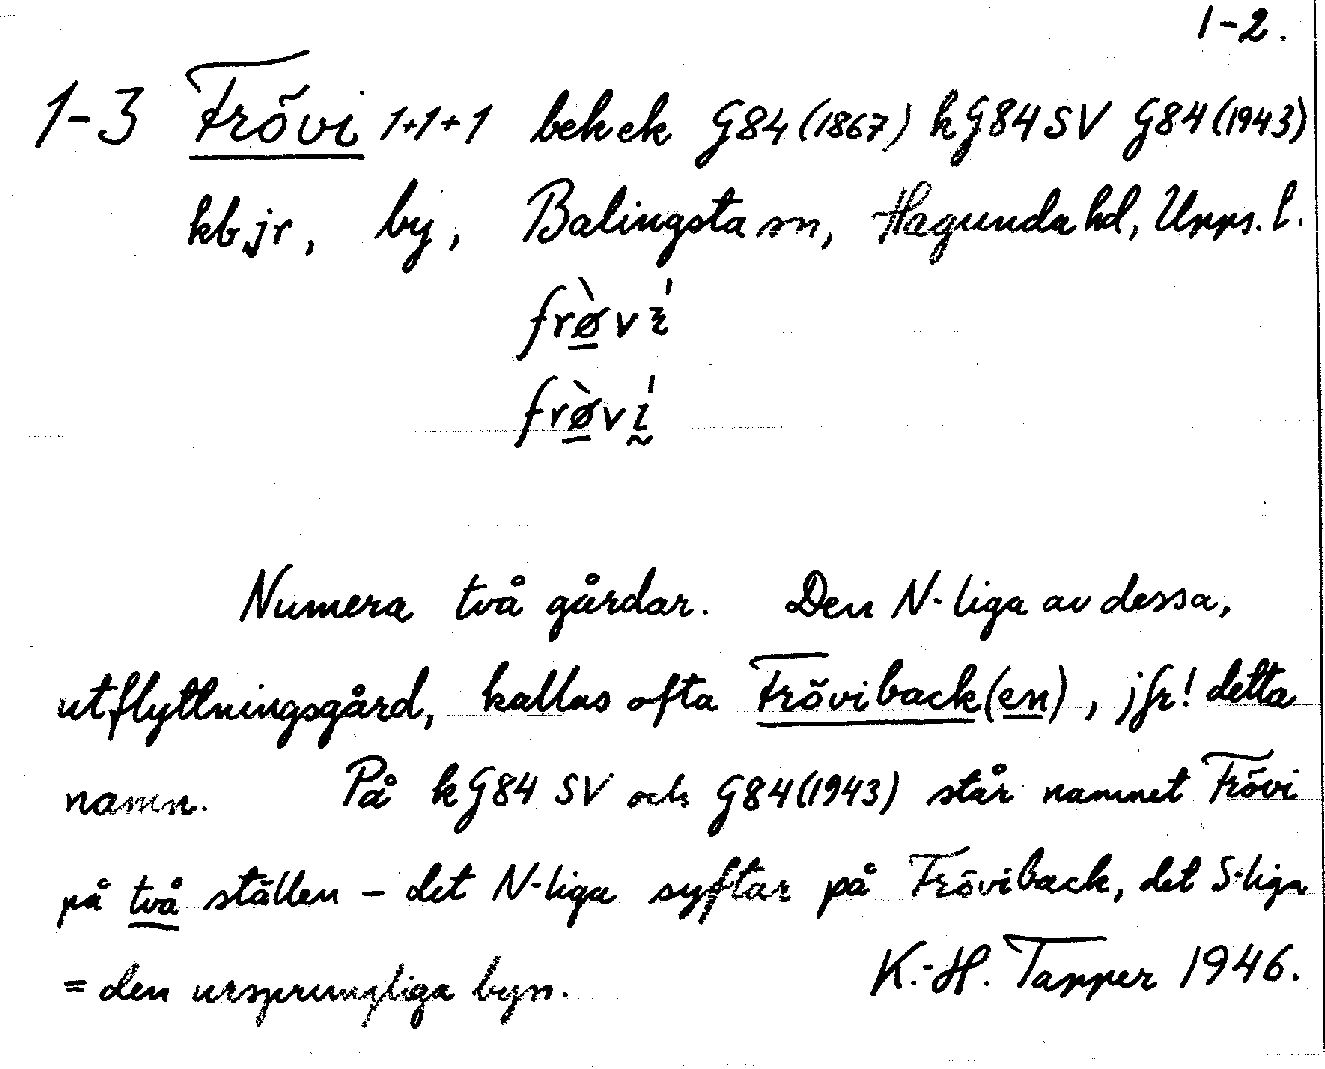 1-2.
1-3 Frövi 1+1+1 bekek G84 (1867) kG84 SV G84 (1943)
kb, jr, by, Balingsta sn, Hagunda hd, Upps. l.
Numera två gårdar. Den N-liga av dessa,
utflyttningsgård, kallas ofta Fröviback(en), jfr! detta
namn. På kG84 SV och G84 (1943) står namnet Frövi
på två ställen – det N-liga syftar på Fröviback, det S-liga
= den ursprungliga byn. K.-H. Tapper 1946.